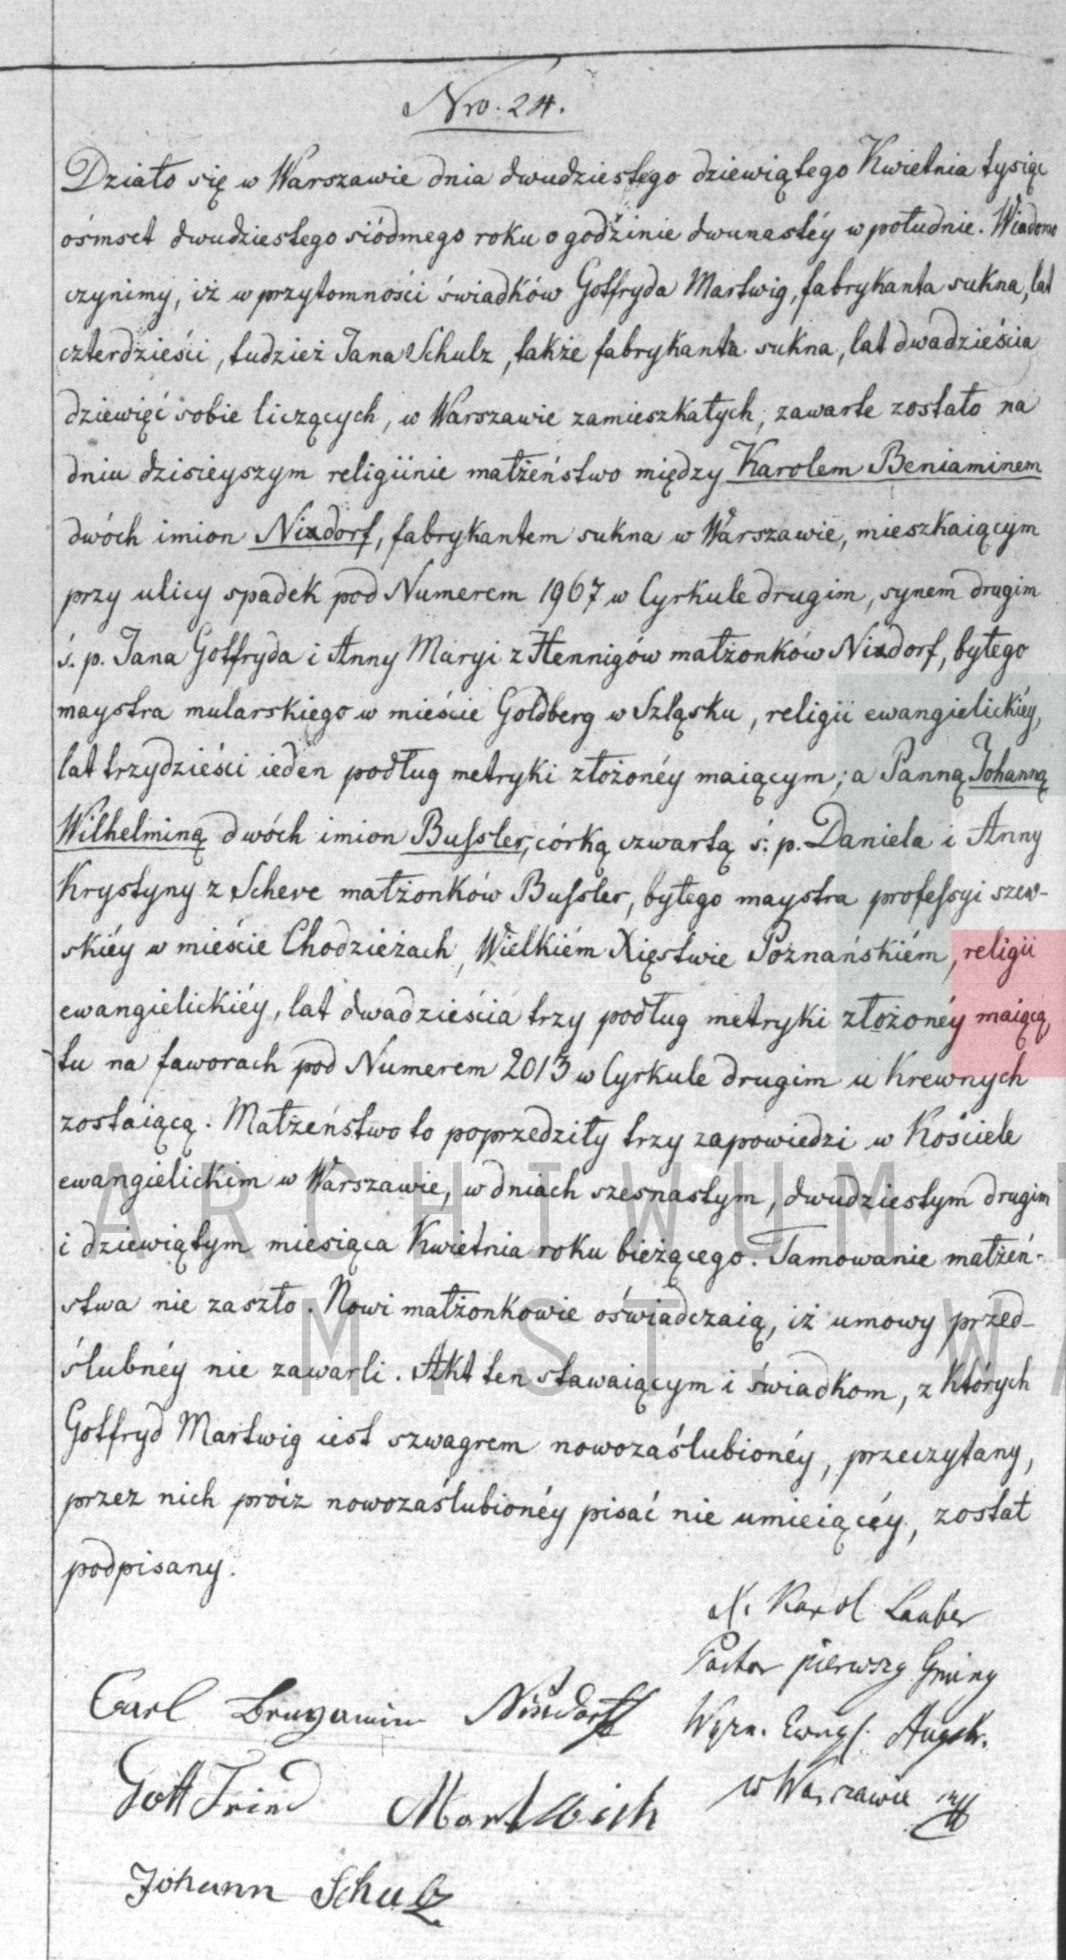 Nro. 24.
Działo się w Warszawie dnia dwudziestego dziewiątego Kwietnia tysiąc
ośmset dwudziestego siódmego roku o godzinie dwunastéy w południe. Wiadomo
czynimy, iż w przytomności świadków Gottfryda Martwig, fabrykanta sukna, lat
czterdzieści, tudzież Jana Schulz, także fabrykanta sukna, lat dwadzieścia
dziewięć sobie liczących, w Warszawie zamieszkałych, zawarte zostało na
dniu dzisieyszym religiinie małżeństwo między Karolem Beniaminem
dwóch imion Nixdorf, fabrykantem sukna w Warszawie, mieszkaiącym
przy ulicy spadek pod Numerem 1967 w Cyrkule drugim, synem drugim
ś. p. Jana Gottfryda i Anny Maryi z Hennigów małżonków Nixdorf, byłego
maystra mularskiego w mieście Goldberg w Szląsku, religii ewangielickiéy,
lat trzydzieści ieden podług metryki złożonéy maiącym; a Panną Johanną
Wilhelminą dwóch imion Bussler, córką czwartą ś. p. Daniela i Anny
Krystyny z Scheve małżonków Bussler, byłego maystra professyi szew-
skiéy w mieście Chodzieżach, Wielkiém Xięstwie Poznańskiém, religii
ewangielickiéy, lat dwadzieścia trzy podług metryki złożonéy maiącą,
tu na faworach pod Numerem 2013 w Cyrkule drugim u Krewnych
zostaiącą. Małżeństwo to poprzedziły trzy zapowiedzi w Kościele
ewangielickim w Warszawie, w dniach szesnastym, dwudziestym drugim
i dziewiątym miesiąca Kwietnia roku bieżącego. Tamowanie małżeń-
stwa nie zaszło. Nowi małżonkowie oświadczaią, iż umowy przed-
ślubnéy nie zawarli. Akt ten stawaiącym i świadkom, z których
Gottfryd Martwig iest szwagrem nowozaślubionéy, przeczytany,
przez nich prócz nowozaślubionéy pisać nie umieiącéy, został
podpisany.
X. Karol Lauber
Pastor pierwszy Gminy
Wyzn. Ewagl. Augsb.
w Warszawie
Carl Benyamin Nixdorff
Gottfried Martwich
Johann Schulz
ARCHIWUM
M. ST. WA